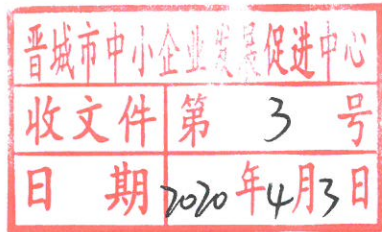 晋城市中小企业发展促进中心
收文件 第 3 号
日 期 2020年4月3日